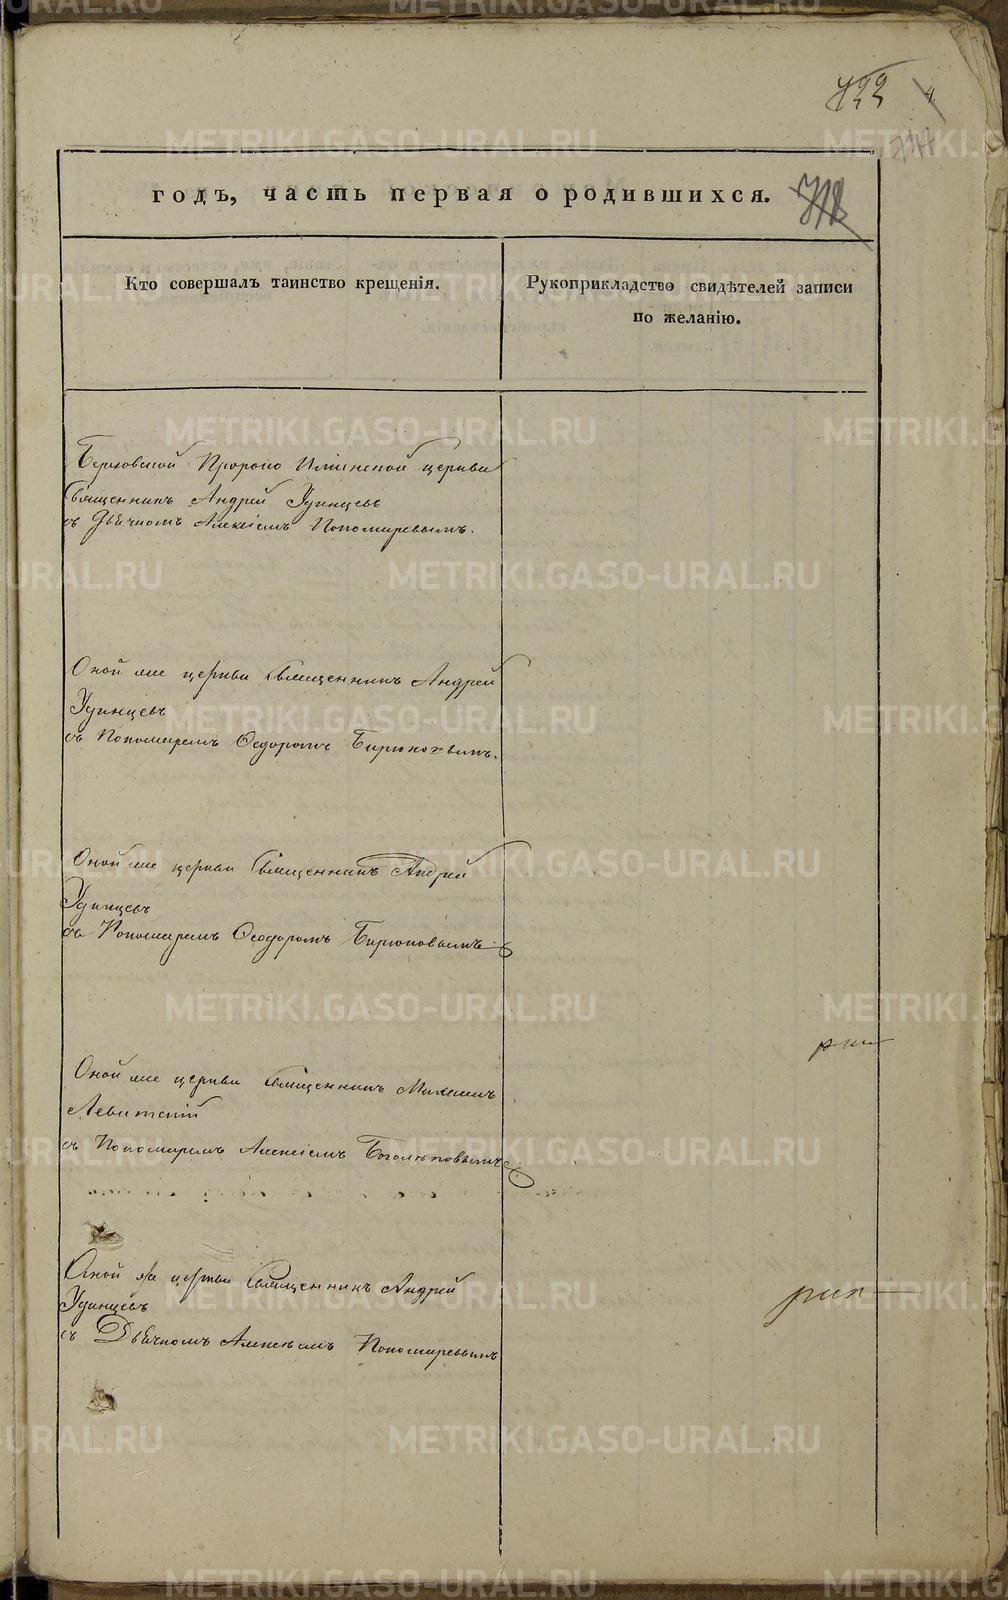 METRIKI.GASO-URAL.RU
422
4
годъ, часть первая о родившихся.
Кто совершалъ таинство крещенія.
Рукоприкладство свидѣтелей записи
по желанію.
Пророко Илiинской церкви
Священникъ Андрей Удинцевъ
съ Дьячкомъ Алексіемъ Пономаревымъ.
Оной же церкви Священникъ Андрей
Удинцевъ
съ Пономаремъ Ѳеодоромъ Бирюковымъ.
Оной же церкви Священникъ Андрей
Удинцевъ
съ Пономаремъ Ѳеодоромъ Бирюковымъ
Оной же церкви Священникъ Михаилъ
Левитскій
съ Пономаремъ Алексіемъ Боголеповымъ
Оной же церкви Священникъ Андрей
Удинцевъ
съ Дьячкомъ Алексѣемъ Пономаревымъ